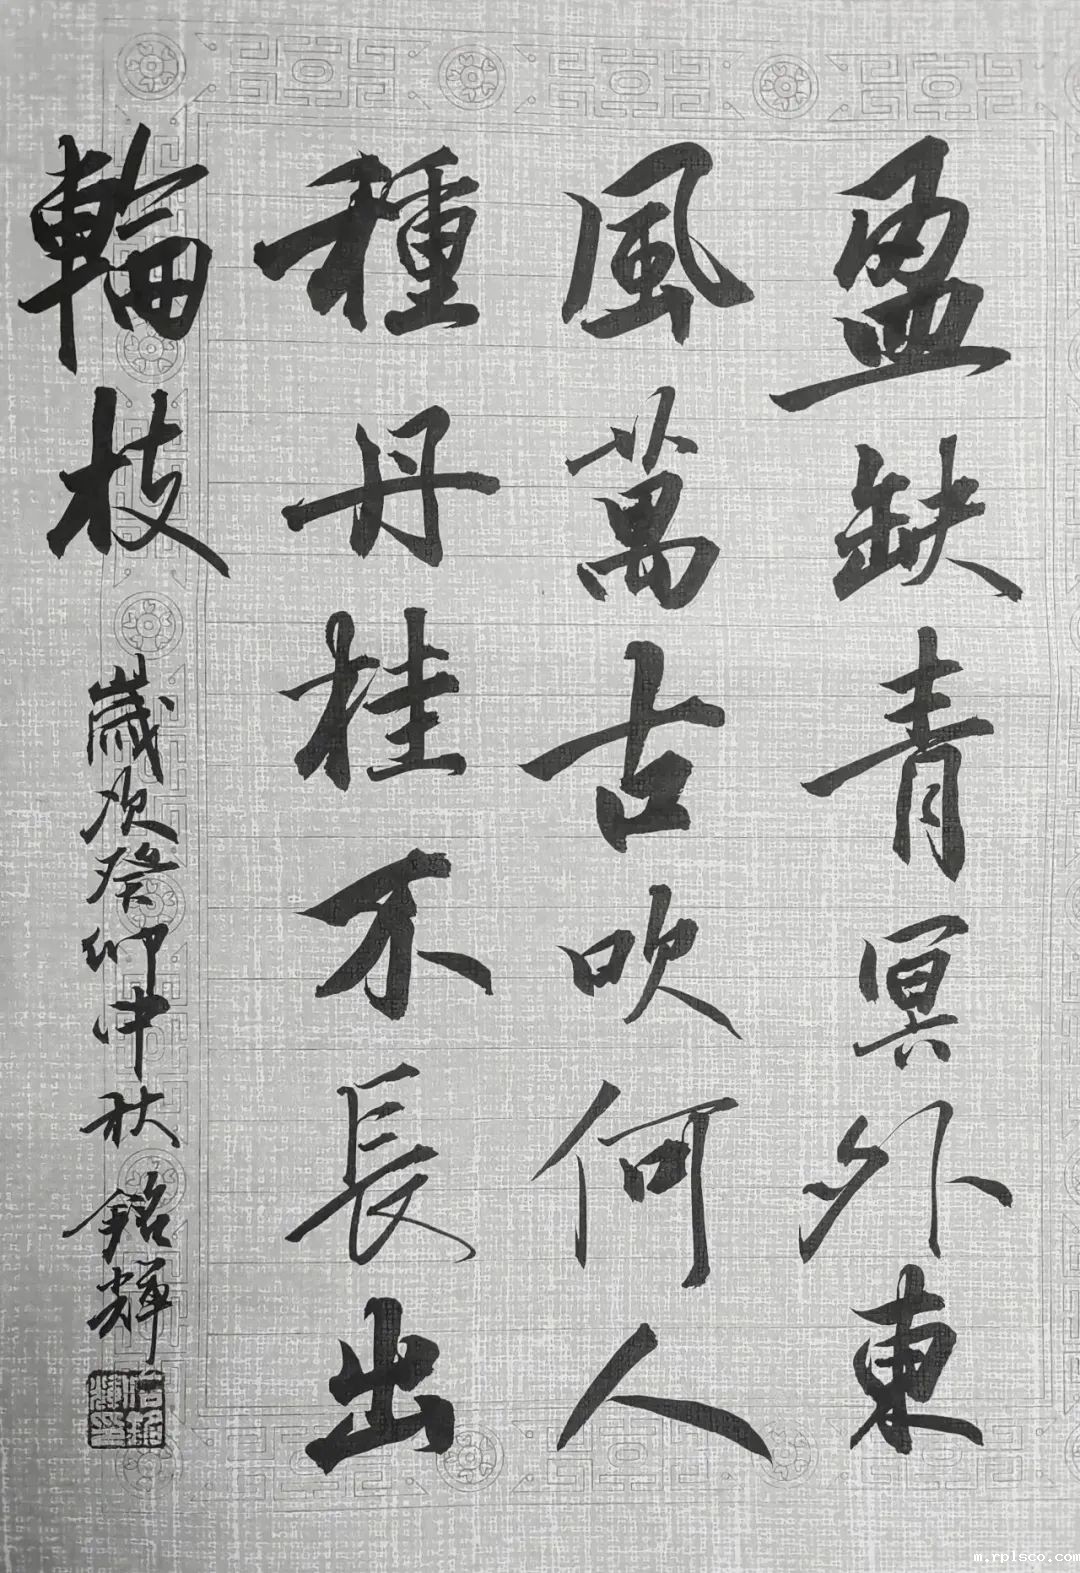 盈缺青冥外東
風萬古吹何人
種丹桂不長出
輪枝
歲次癸卯中秋 銘輝
m.rplsco.com